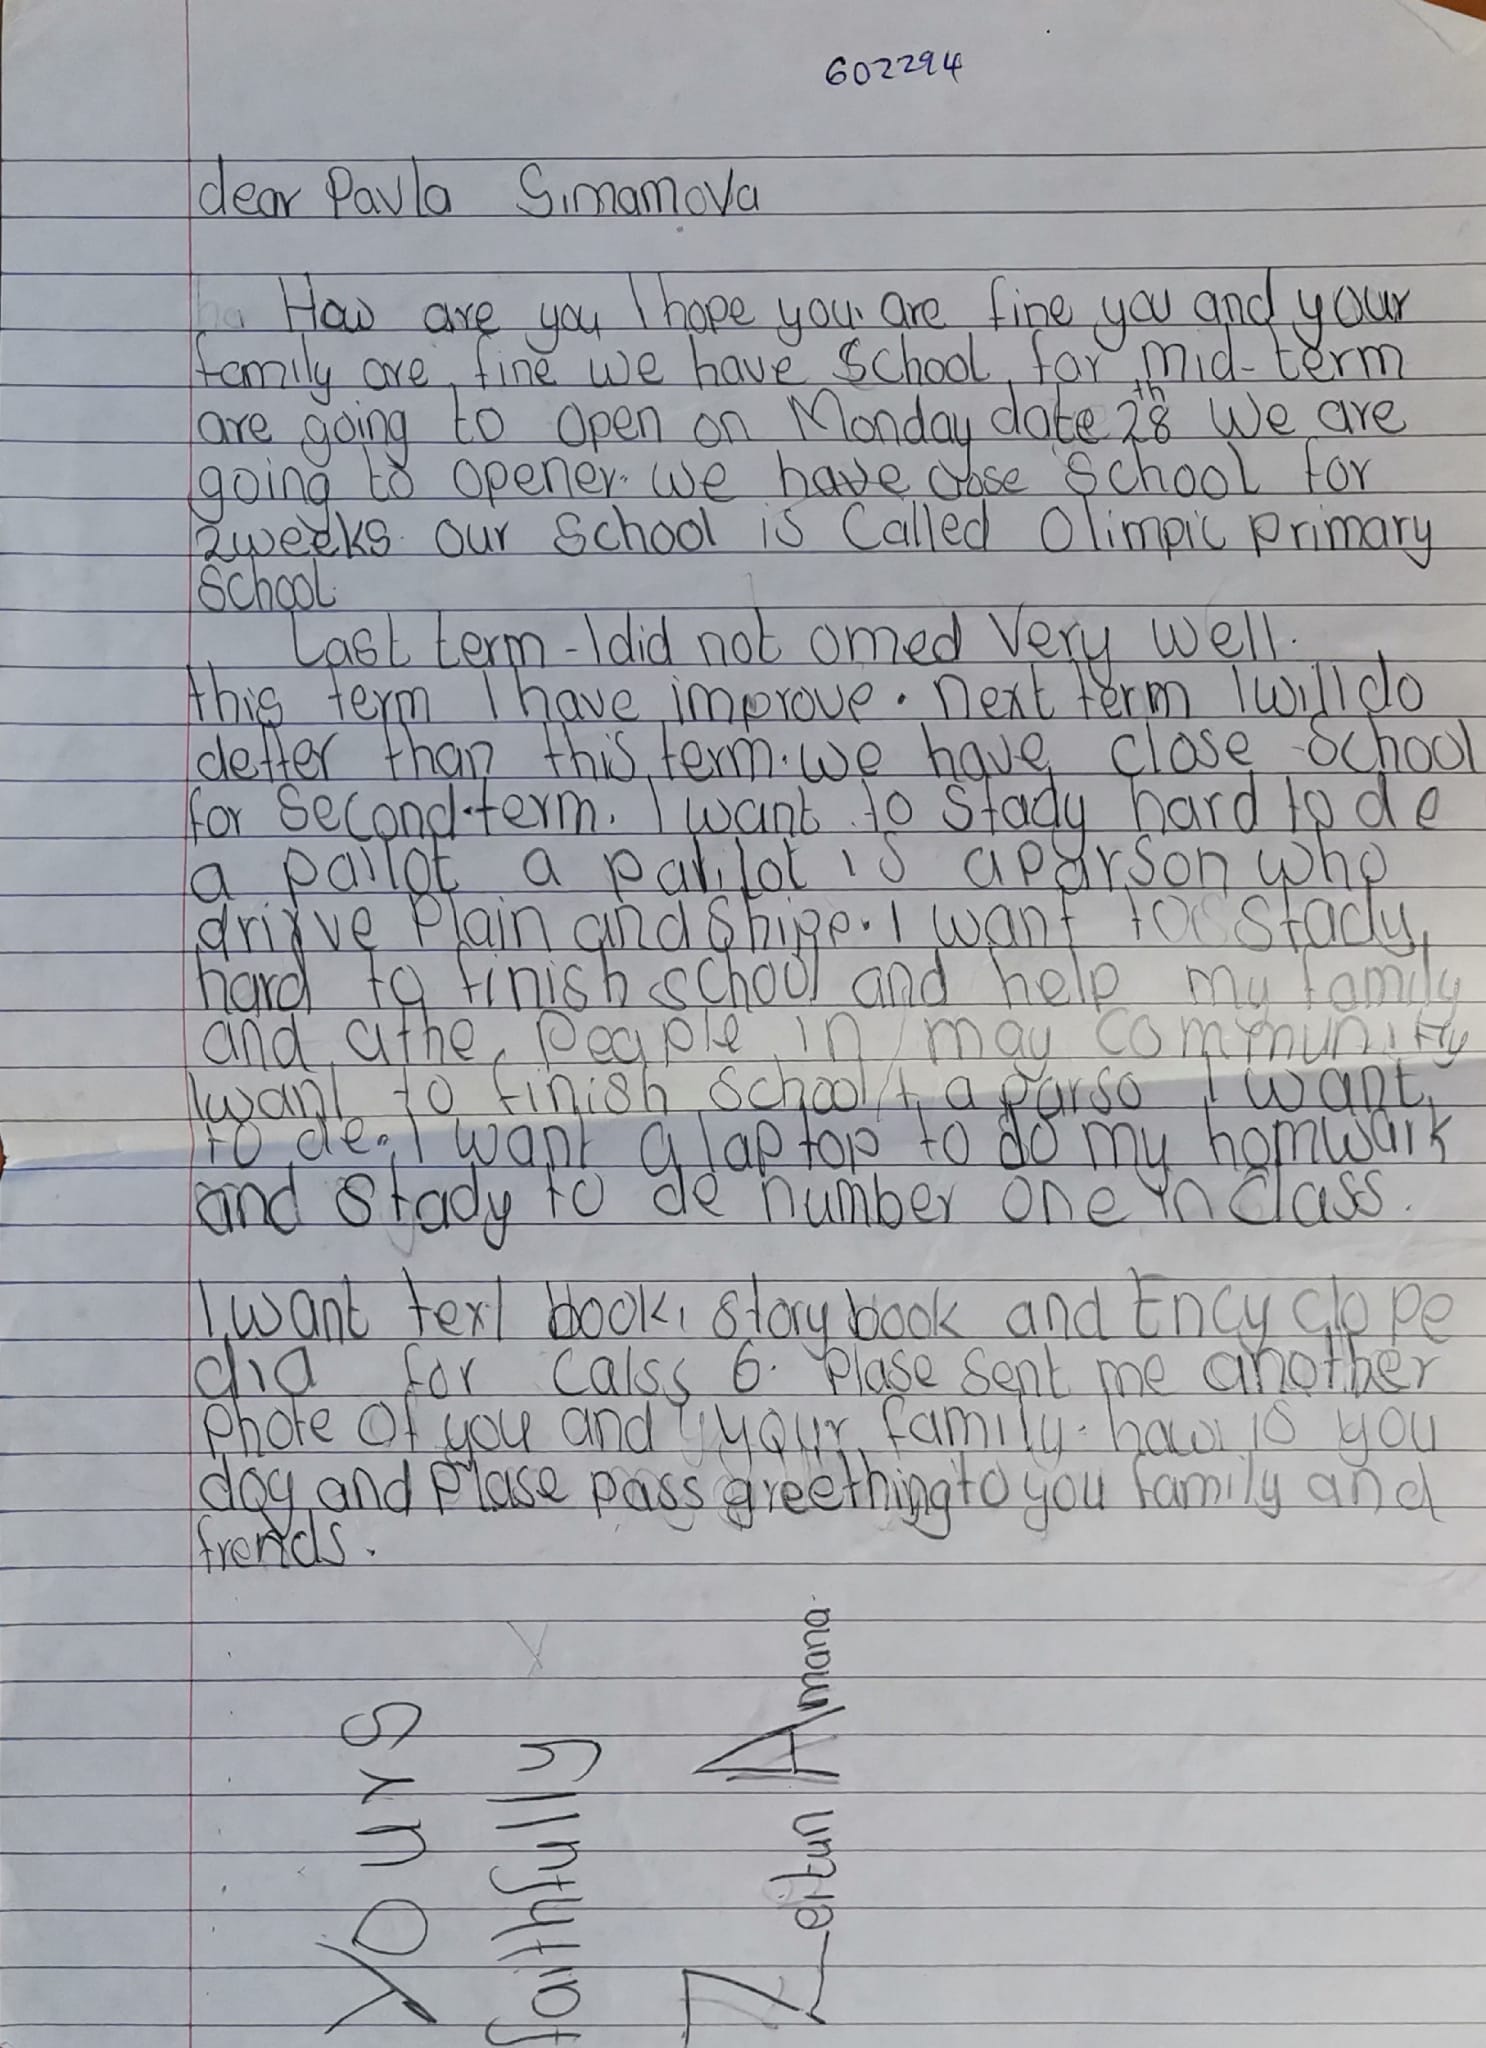 602294
dear Pavla Simamova
How are you I hope you are fine you and your
family are fine we have School for mid-term
are going to open on Monday date 28th We are
going to opener. we have close School for
2weeks. our School is Called Olimpic primary
School.
Last term - I did not omed Very well.
this term I have improve. next term I will do
detter than this term. we have close School
for Second term. I want to Stady hard to de
a pailot a pailot is a parson who
drive Plain and Shipe. I want to Stady
hard to finish school and help my family
and athe peaple in may community
I want to finish school a parso I want
to de. I want a laptop to do my homwark
and Stady to de number one in Class.
I want text book, story book and Encyclope
dia for Calss 6. Plase sent me another
phote Of you and your family. how is you
dog and Plase pass greething to you family and
frends.
Yours
faithfully
Zeitun Amana.